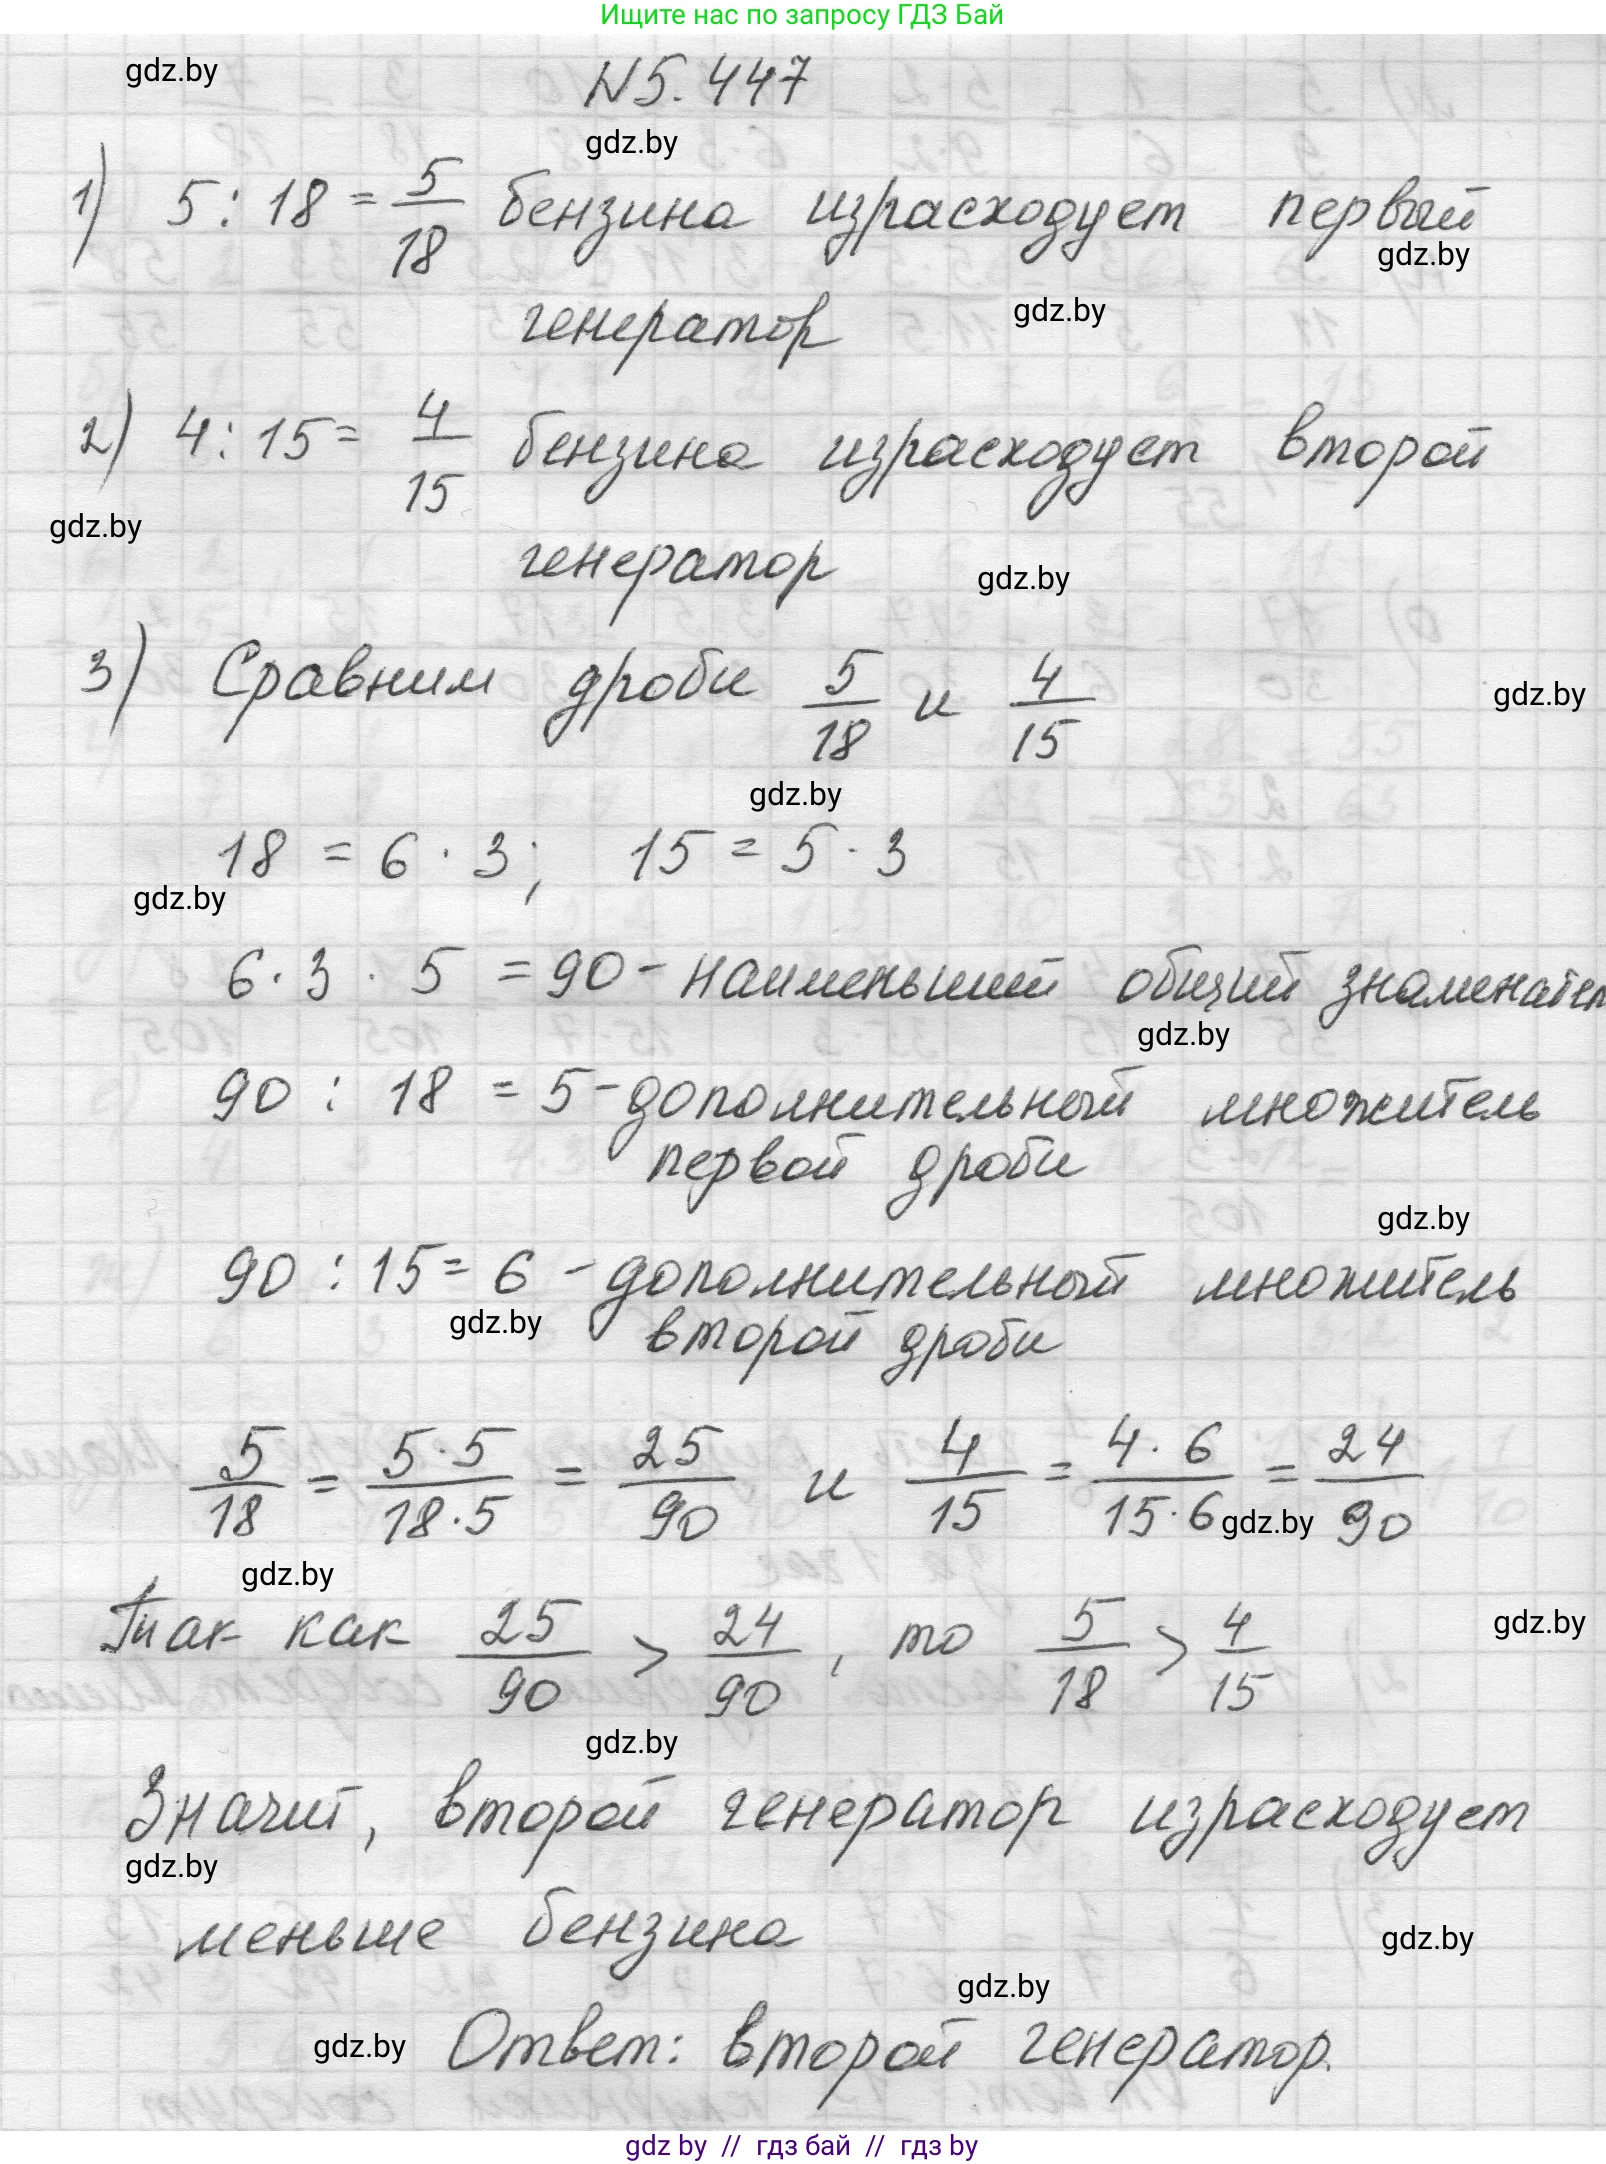 Ищите нас по запросу ГДЗ Бай
gdz.by
N5.447
gdz.by
1) 5 : 18 = 5/18 бензина израсходует первый
gdz.by
генератор
gdz.by
2) 4 : 15 = 4/15 бензина израсходует второй
gdz.by
генератор
gdz.by
3) Сравним дроби 5/18 и 4/15
gdz.by
gdz.by
18 = 6 · 3; 15 = 5 · 3
gdz.by
6 · 3 · 5 = 90 - наименьший общий знаменател
gdz.by
90 : 18 = 5 - дополнительный множитель
первой дроби
gdz.by
90 : 15 = 6 - дополнительный множитель
gdz.by
второй дроби
5/18 = 5·5/18·5 = 25/90 и 4/15 = 4·6/15·6 = 24/90
gdz.by
gdz.by
Так как 25/90 > 24/90, то 5/18 > 4/15
gdz.by
gdz.by
Значит, второй генератор израсходует
gdz.by
меньше бензина
gdz.by
gdz.by
gdz.by
Ответ: второй генератор.
gdz by // гдз бай // гдз by